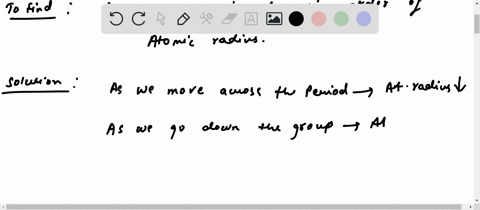 To find :
of
Atomic radius.
Solution : As we move across the Period → At. radius ↓
As we go down the group → At